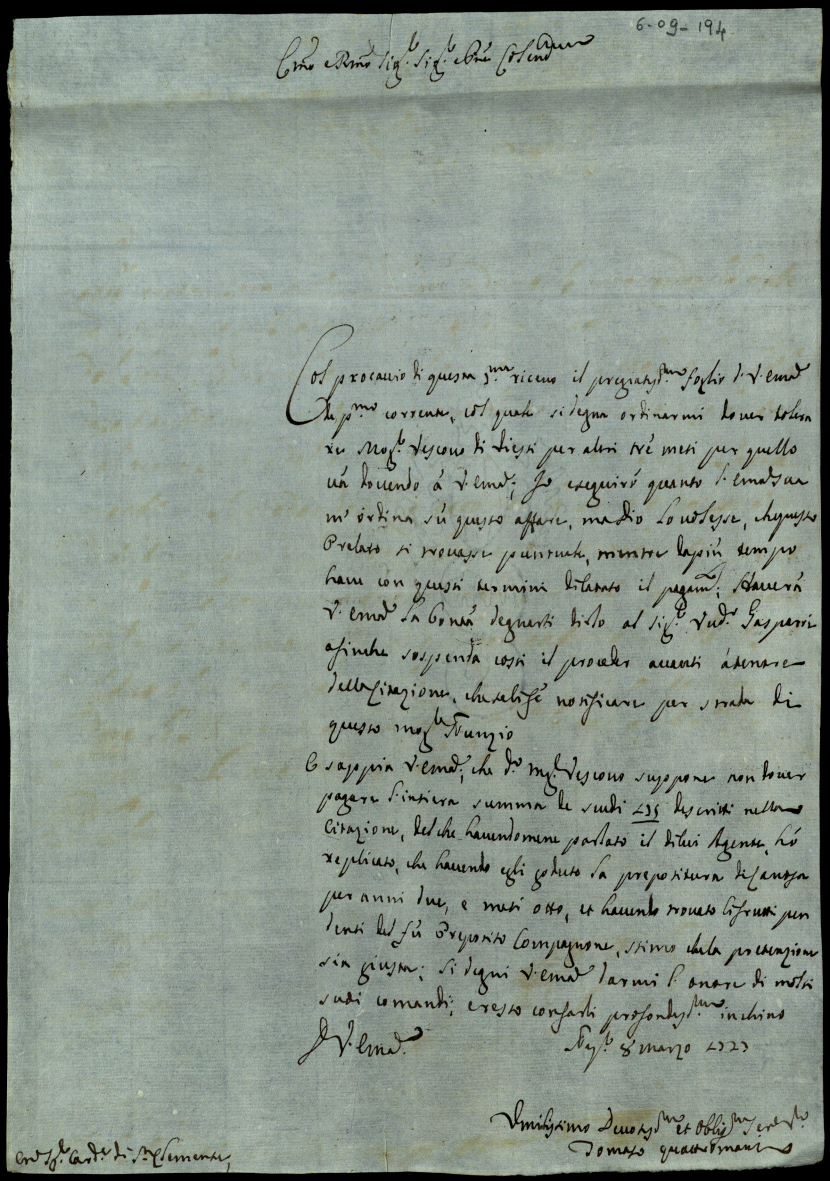 6-09-194
Em̃o e Rm̃o Sig.r Sig.r e Pne Colendmo
Col procaccio di questa riceuo il pregiatis.mo foglio di V. Em.a
de p.mo corrente, col quale si degna ordinarmi douer tolera
re Mog.r Vescouo di Viesti per altri trè mesi per quello
uà douendo à V. Em.a; Io eseguirò quanto l'Em.a Sua
m'ordina sù questo affare, ma Dio lo volesse, che questo
Prelato si trouasse puntuale, mentre da più tempo
haue con questi termini dilatato il pagam.to; Hauerà
V. Em.a la bontà degnarsi dirlo al Sig.r Vud.e Gasparri
afinche sospenda costì il proceder auanti à tenore
della Citazione, che se li fè notificare per strada di
questo Mog.r Nunzio
E sappia V. Em.a, che d.o Mg.r Vescouo suppone non douer
pagare l'intiera summa de scudi descritti nella
Citazione, del che hauendomene parlato il di lui Agente, hò
replicato, che hauendo egli goduto la prepositura di
per anni due, e mesi otto, et hauendo trouato li frutti pen
denti del fù Preposito Compagnone, stimo che la pretenzione
sia giusta; Si degni V. Em.a darmi l'onore di molti
suoi comandi; e resto con farli profondis.mo inchino
D V. Em.a
Nap.li 8 Marzo 1727
Vmilissimo Deuotis.mo et Oblig.mo Ser.re
Tomaso Quattromani
Em.o Sig.r Card.le di S. Clemente,